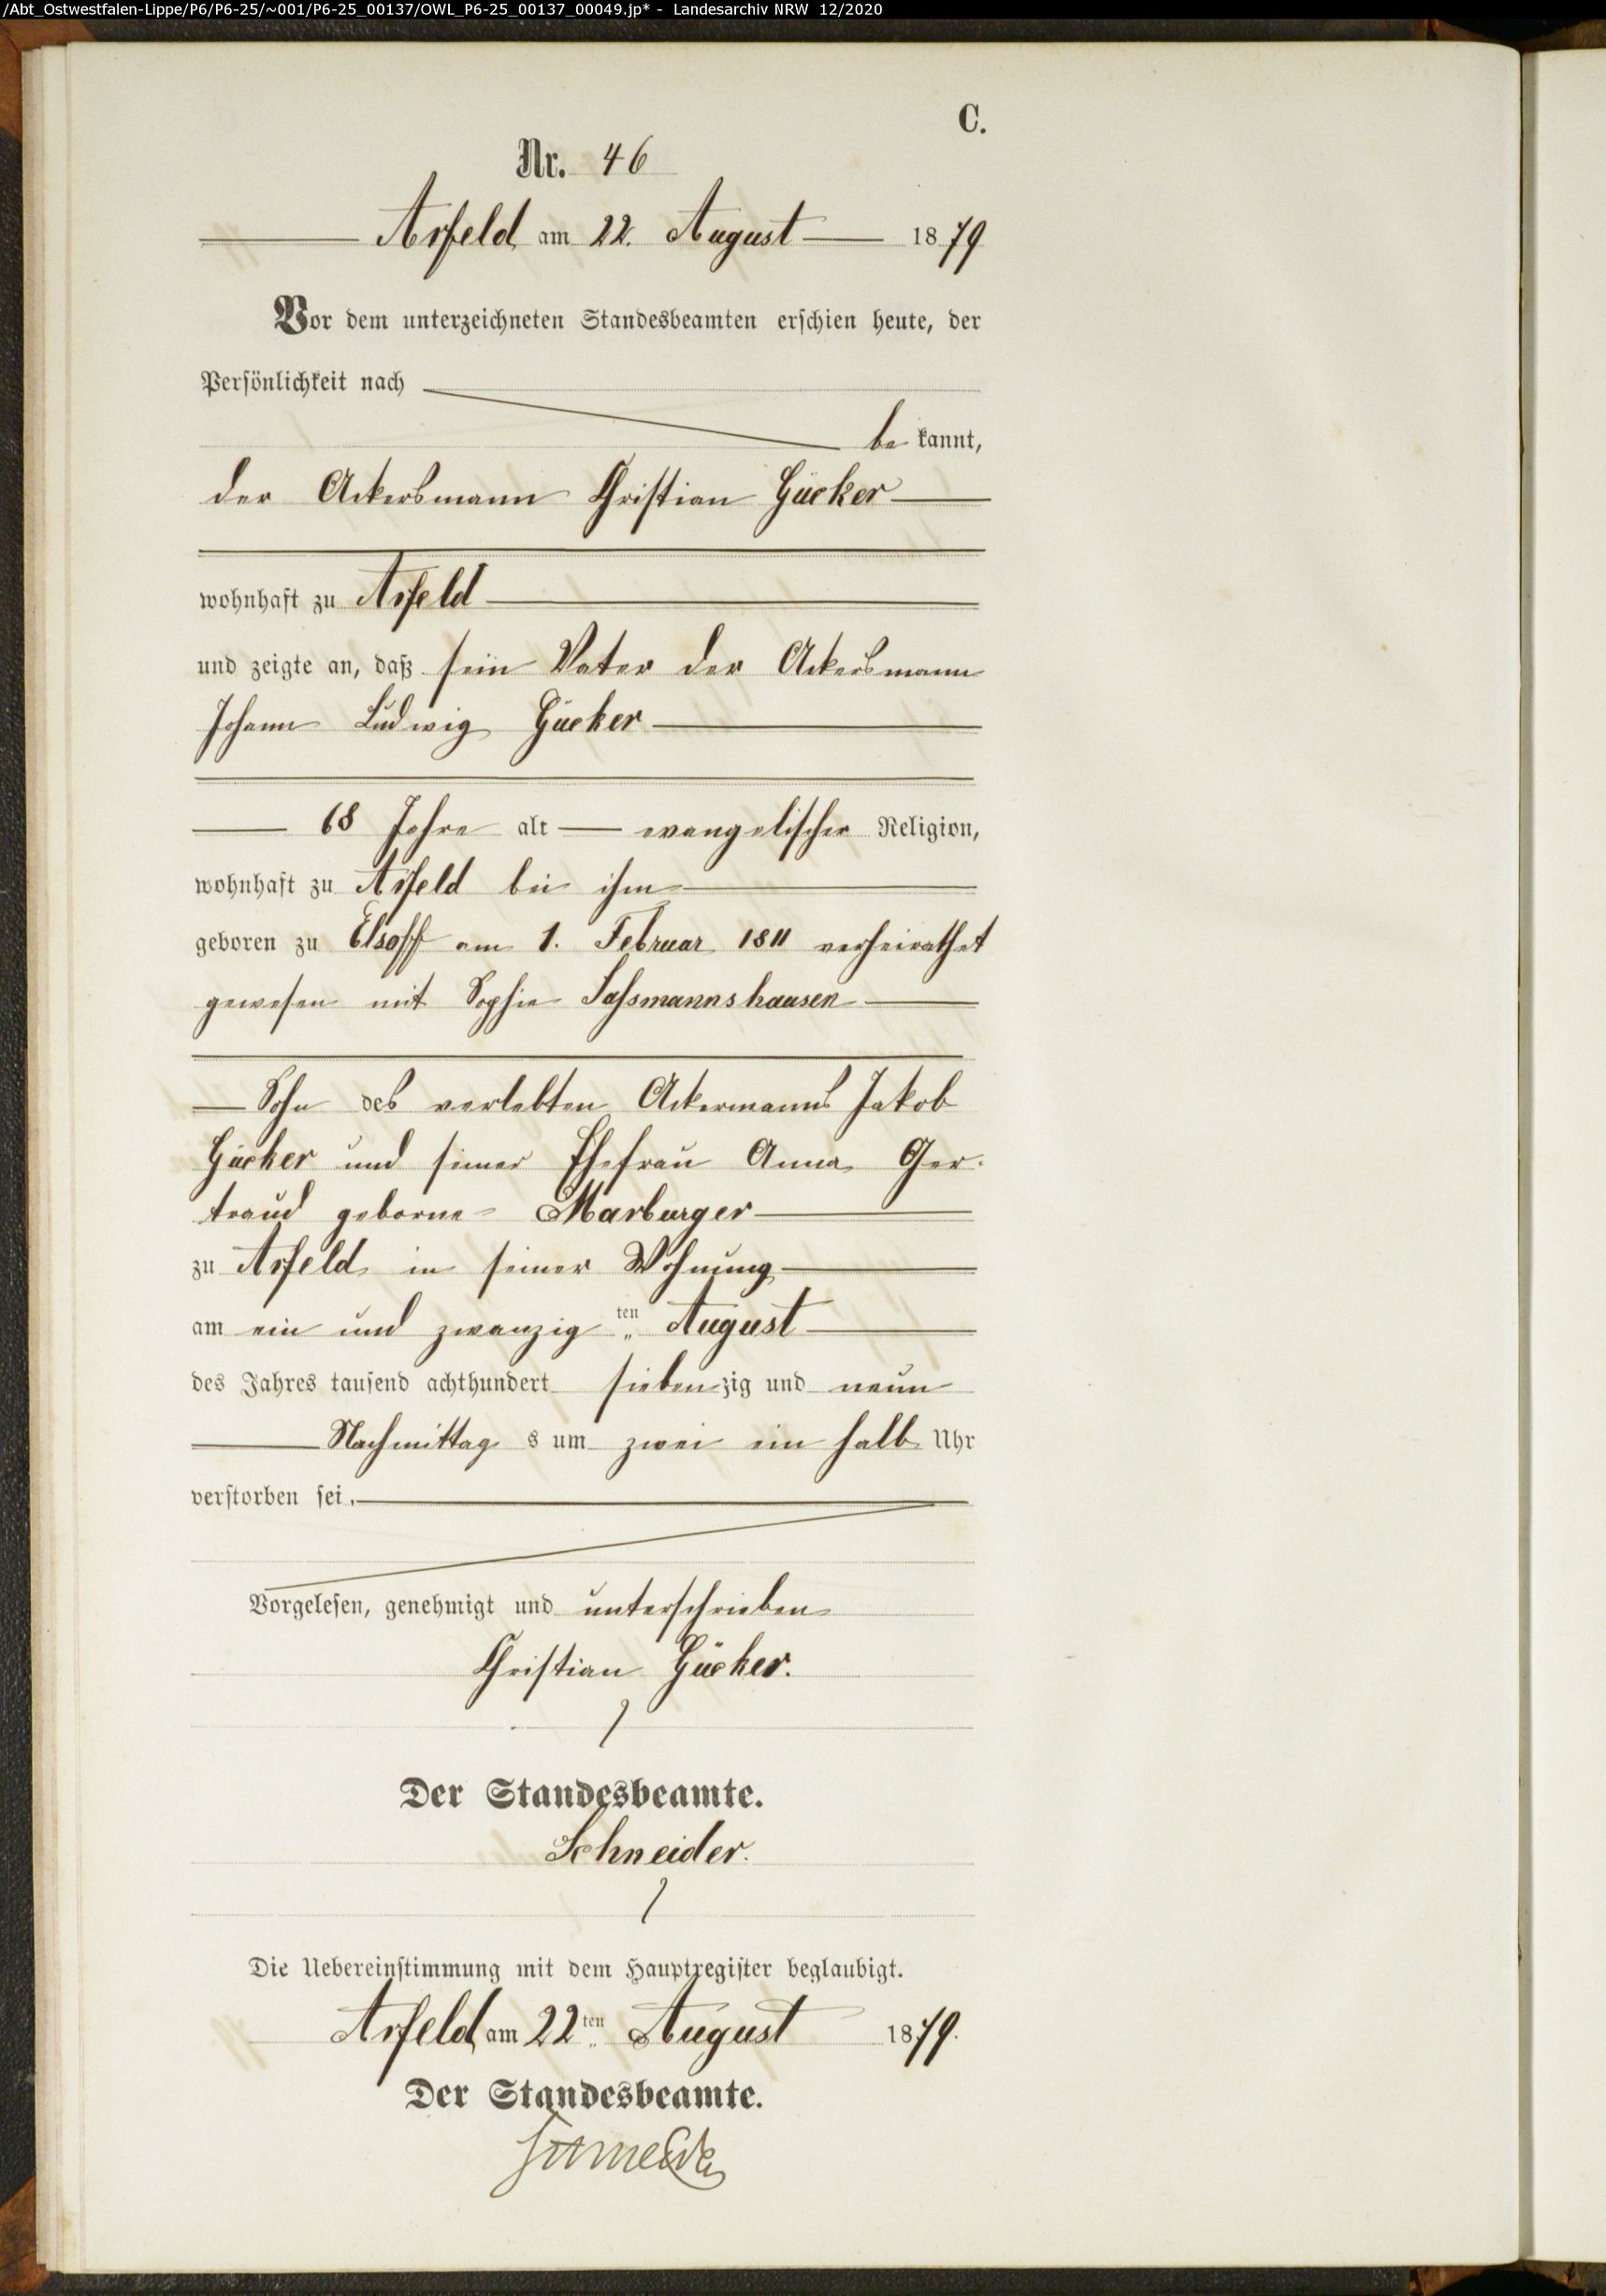 /Abt_Ostwestfalen-Lippe/P6/P6-25/~001/P6-25_00137/OWL_P6-25_00137_00049.jp* - Landesarchiv NRW 12/2020
C.
Nr. 46
Arfeld am 22. August 1879
Vor dem unterzeichneten Standesbeamten erschien heute, der
Persönlichkeit nach
be kannt,
der Ackersmann Christian Gücker
wohnhaft zu Arfeld
und zeigte an, daß sein Vater der Ackersmann
Johann Ludwig Gücker
68 Jahre alt evangelischer Religion,
wohnhaft zu Arfeld bei ihm
geboren zu Elsoff am 1. Februar 1811 verheirathet
gewesen mit Sophie Sassmannshausen
Sohn des verlebten Ackermanns Jakob
Gücker und seiner Ehefrau Anna Ger-
traud geborne Marburger
zu Arfeld in seiner Wohnung
am ein und zwanzig ten August
des Jahres tausend achthundert siebenzig und neun
Nachmittag s um zwei ein halb Uhr
verstorben sei.
Vorgelesen, genehmigt und unterschrieben
Christian Gücker.
Der Standesbeamte.
Schneider.
Die Uebereinstimmung mit dem Hauptregister beglaubigt.
Arfeld am 22ten August 1879.
Der Standesbeamte.
Schneider